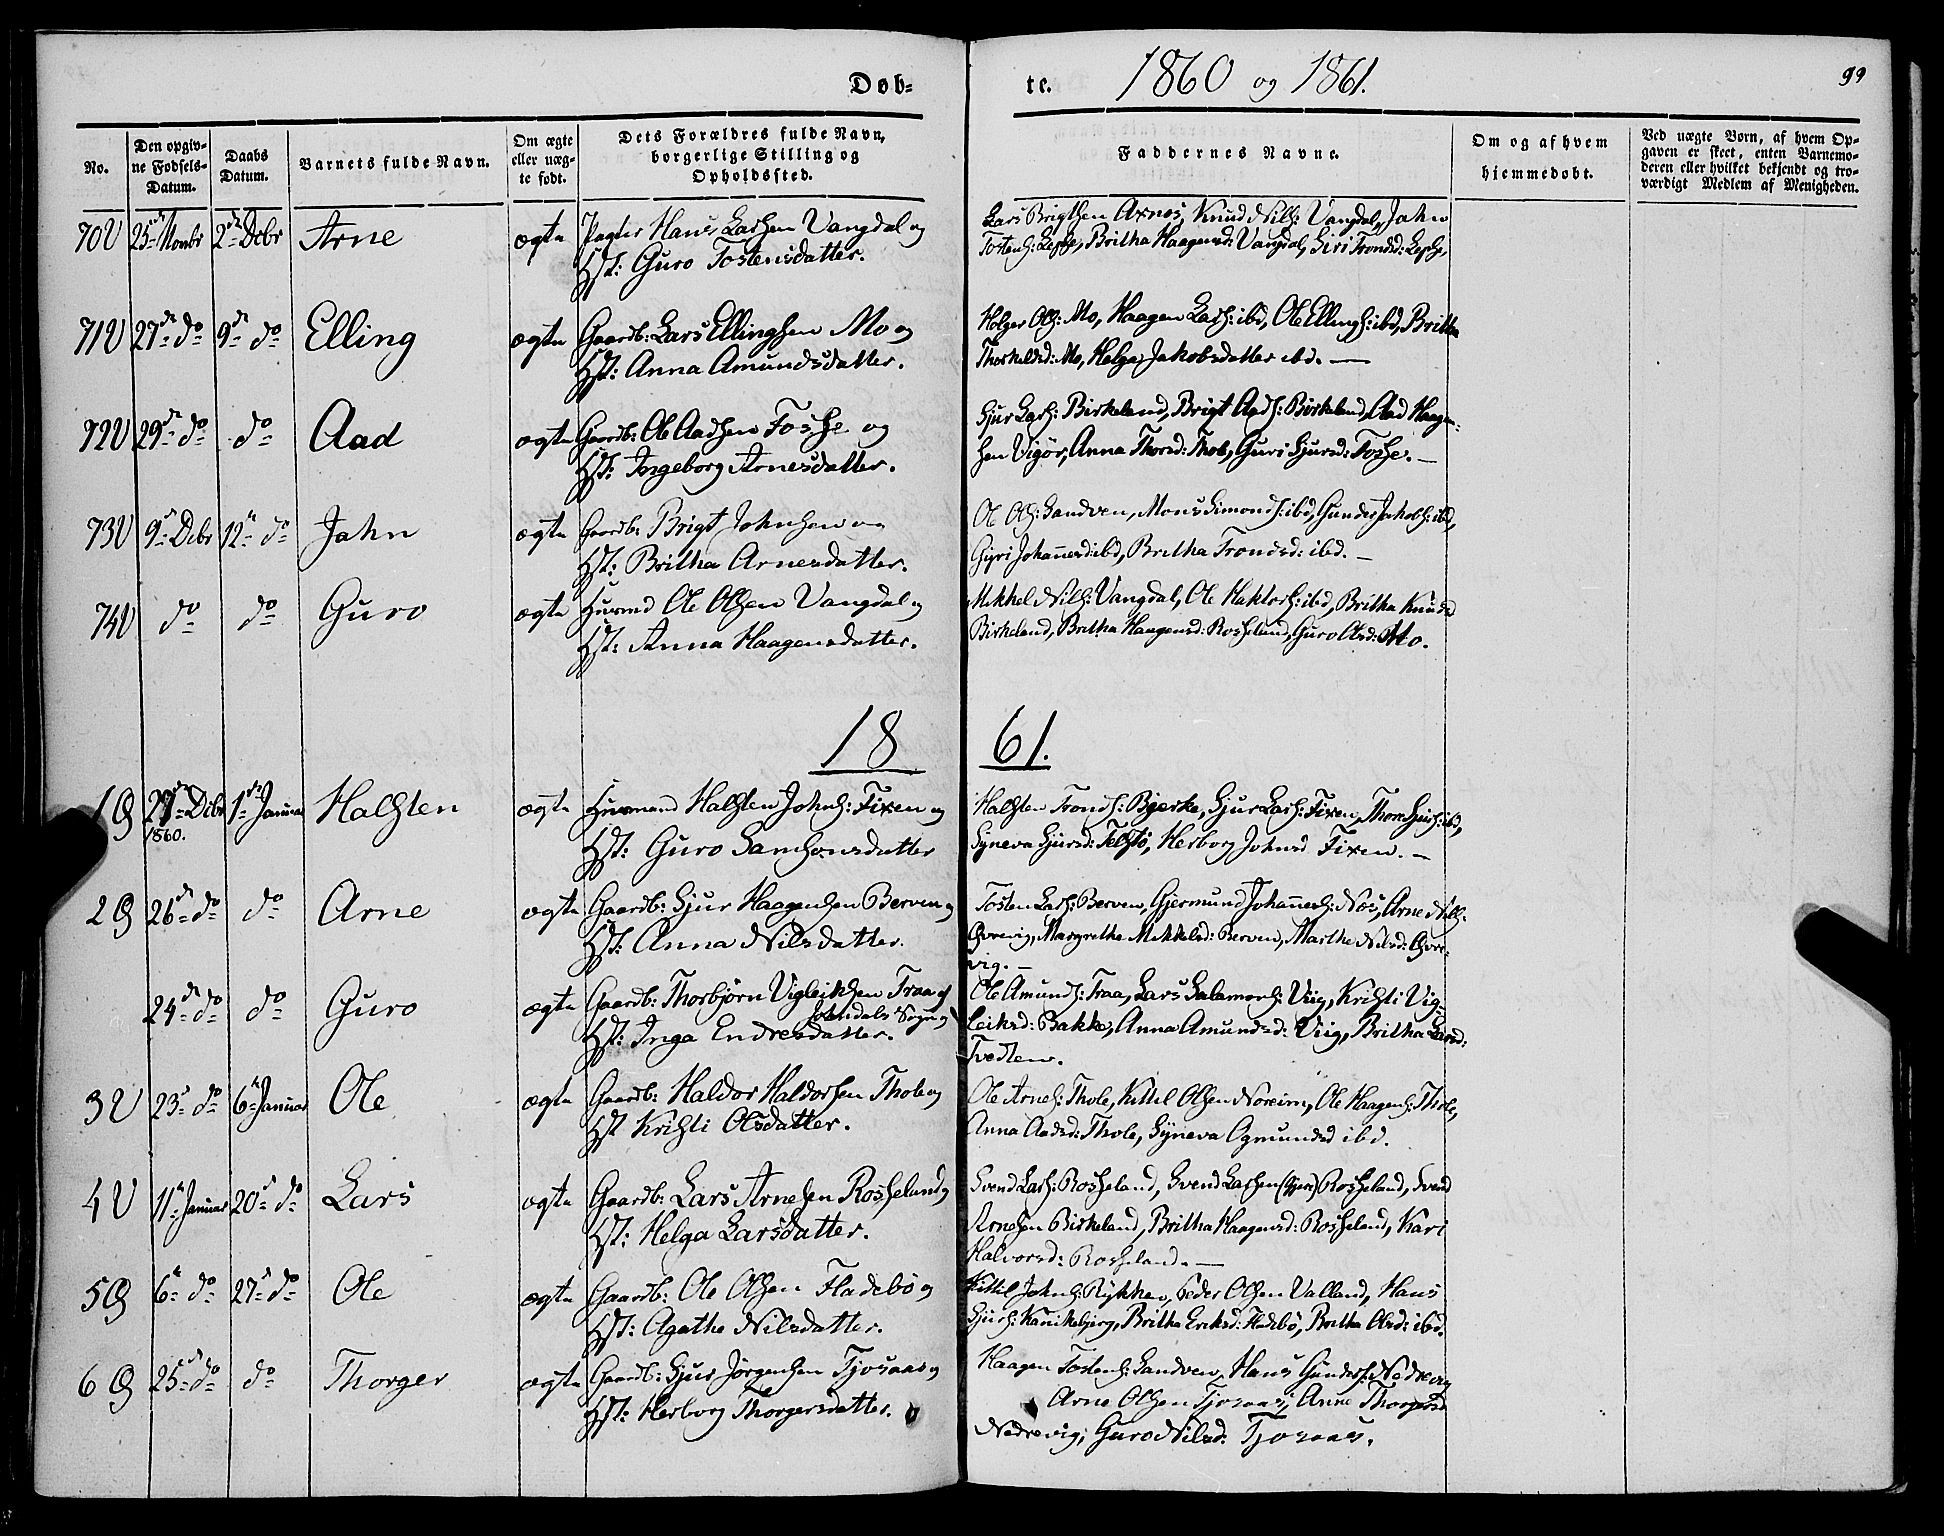 Døb-
te. 1860 og 1861. 99
No.
Den opgiv-
ne Fødsels-
Datum.
Daabs
Datum.
Barnets fulde Navn.
Om ægte
eller uæg-
te født.
Dets Forældres fulde Navn,
borgerlige Stilling og
Opholdssted.
Faddernes Navne.
Om og af hvem
hjemmedøbt.
Ved uægte Børn, af hvem Op-
gaven er skeet, enten Barnemo-
deren eller hvilket bekjendt og tro-
værdigt Medlem af Menigheden.
70 V 25de Novbr 2den Debr Arne ægte Hans Larsen Vangdal og
Hst: Guro Tostensdatter.
Lars Brigtsen Axnes, Knud Nils: Vangdal, Jahn
Tostens: Lepse, Britha Haagensd: Vangdal, Siri Trondsd: Lepse,
71 V 27de do 9de do Elling ægte Gaardb: Lars Ellingsen Mo og
Hst: Anna Amundsdatter.
Holger Ols: Mo, Haagen Lars: ibd, Ole Ellings: ibd, Britha
Thorkelsd: Mo, Helga Jakobsdatter ibd. —
72 V 29de do do Aad ægte Gaardb: Ole Aadsen Fosse og
Hst: Ingeborg Arnesdatter.
Sjur Lars: Birkeland, Brigt Aads: Birkeland, Aad Haagen-
sen Vigør, Anna Thorsd: Thole, Guri Sjursd: Fosse. —
73 V 9de Debr 12te do Jahn ægte Gaardb: Brigt Johnsen og
Hst: Britha Arnesdatter.
Ole Ols: Sandven, Mons Simonds: ibd, Gunder Jakobs: ibd,
Gyri Johannesd: ibd, Britha Trondsd: ibd. —
74 V do do Guro ægte Husmd Ole Olsen Vangdal og
Hst: Anna Haagensdatter.
Mikkel Nils: Vangdal, Ole Haktors: ibd, Britha Knudsd
Birkeland, Britha Haagensd: Rosseland, Guro Olsd: Mo.
18 61.
1 Ø 27de Debr 1860. 1ste Januar Halsten ægte Husmand Halsten Johns: Fixen og
Hst: Guro Samsonsdatter
Halsten Tronds: Bjerke, Sjur Lars: Fixen, Thore Sjurs: ibd,
Syneva Sjursd: Telstø, Herborg Johnsd Fixen. —
2 Ø 26de do do Arne ægte Gaardb: Sjur Haagensen Berven og
Hst: Anna Nilsdatter.
Tosten Lars: Berven, Gjermund Johannes: Nes, Arne Nils:
Øvrevig, Margrethe Mikkelsd: Berven, Marthe Nilsd: Øvre-
vig. —
24de do do Guro ægte Gaardb: Thorbjørn Vigleiksen Traa af
Jondals Sogn og
Hst: Inga Endresdatter.
Ole Amunds: Traa, Lars Salamons: Viig, Kristi Vig-
leiksd: Bakke, Anna Amundsd: Viig, Britha Larsd:
Tvedten.
3 V 23de do 6te Januar Ole ægte Gaardb: Haldor Haldorsen Thole og
Hst Kristi Olsdatter.
Ole Arnes: Thole, Kittil Olsen Noreim, Ole Haagens: Thole,
Anna Aadsd: Thole, Syneva Ogmundsd ibd.
4 V 11te Januar 20de do Lars ægte Gaardb: Lars Arnesen Rosseland og
Hst: Helga Larsdatter.
Svend Lars: Rosseland, Svend Larsen Rosseland, Svend
Arnesen Birkeland, Britha Haagensd: Rosseland, Kari
Halvorsd: Rosseland. —
5 Ø 6te do 27de do Ole ægte Gaardb: Ole Olsen Fladebø og
Hst: Agathe Nilsdatter.
Kittil Johns: Rykken, Peder Olsen Valland, Hans
Sjurs: Kanikebjerg, Britha Eriksd: Fladebø, Britha Olsd: ibd.
6 Ø 25de do do Thorger ægte Gaardb: Sjur Jørgensen Tjosaas og
Hst: Herborg Thorgersdatter.
Haagen Tostens: Sandven, Hans Gunders: Nedrevig
Arne Olsen Tjosaas, Anne Thorgersd
Nedrevig, Guro Nilsd: Tjosaas.